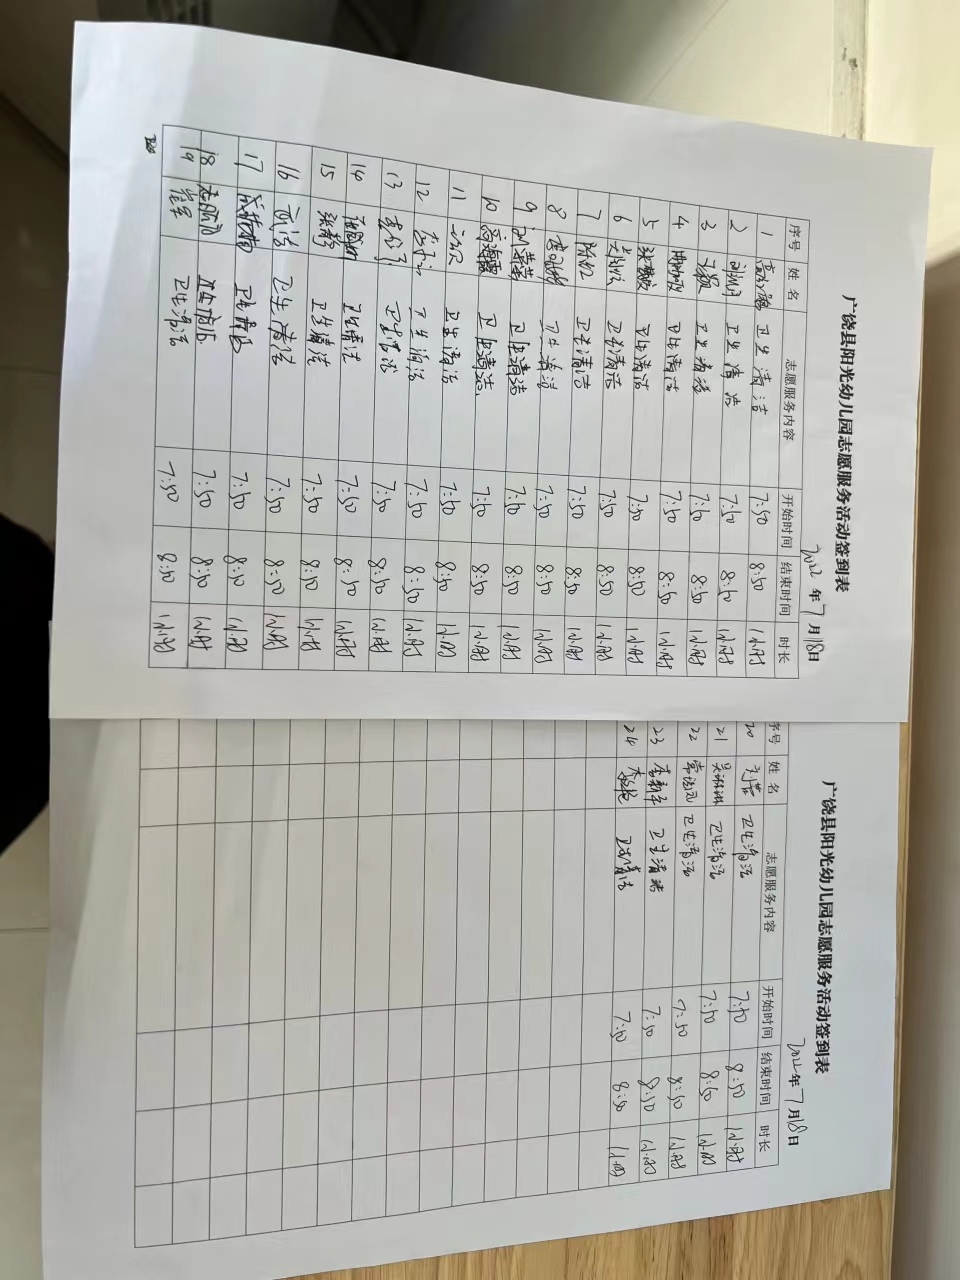 广饶县阳光幼儿园志愿服务活动签到表
2022年7月18日
序号 姓名 志愿服务内容 开始时间 结束时间 时长
1 卫生清洁 7:50 8:50 1小时
2 卫生清洁 7:50 8:50 1小时
3 丁颖 卫生清洁 7:50 8:50 1小时
4 卫生清洁 7:50 8:50 1小时
5 卫生清洁 7:50 8:50 1小时
6 卫生清洁 7:50 8:50 1小时
7 卫生清洁 7:50 8:50 1小时
8 卫生清洁 7:50 8:50 1小时
9 卫生清洁 7:50 8:50 1小时
10 卫生清洁 7:50 8:50 1小时
11 卫生清洁 7:50 8:50 1小时
12 卫生清洁 7:50 8:50 1小时
13 卫生清洁 7:50 8:50 1小时
14 卫生清洁 7:50 8:50 1小时
15 卫生清洁 7:50 8:50 1小时
16 卫生清洁 7:50 8:50 1小时
17 卫生清洁 7:50 8:50 1小时
18 卫生清洁 7:50 8:50 1小时
19 卫生清洁 7:50 8:50 1小时
广饶县阳光幼儿园志愿服务活动签到表
2022年7月18日
序号 姓名 志愿服务内容 开始时间 结束时间 时长
20 卫生清洁 7:50 8:50 1小时
21 吴琳琳 卫生清洁 7:50 8:50 1小时
22 卫生清洁 7:50 8:50 1小时
23 卫生清洁 7:50 8:50 1小时
24 李艳 卫生清洁 7:50 8:50 1小时